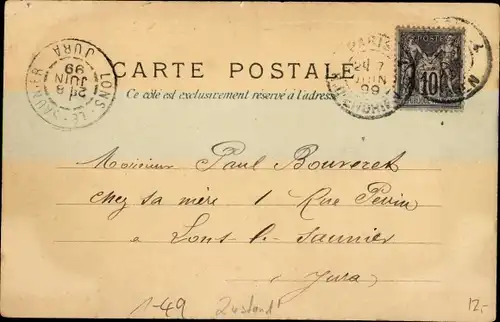 CARTE POSTALE
Ce côté est exclusivement réservé à l'adresse
LONS-LE-SAUNIER
JUIN
99
JURA
PARIS
JUIN
99
POSTE
10
Monsieur Paul Bouveret
chez sa mère 1 Rue Perrin
à Lons-le-Saunier
Jura
1-49 Zustand!
12.-